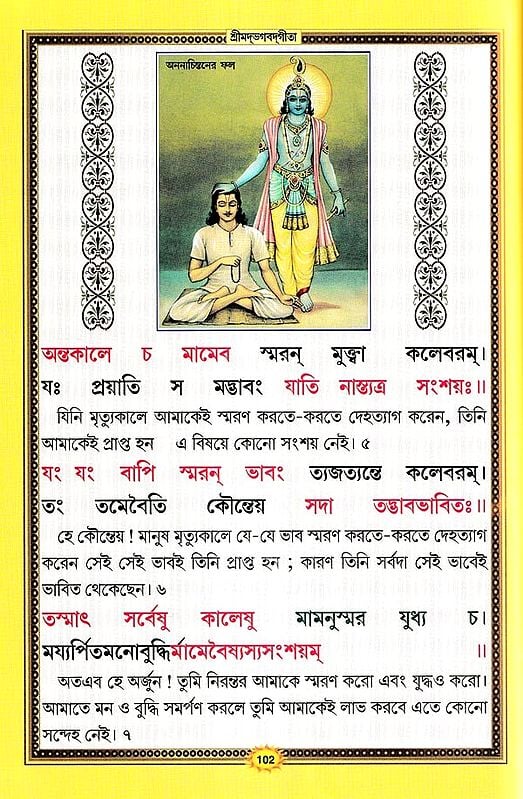 শ্রীমদ্ভগবদ্গীতা
অনন্যচিন্তনের ফল
অন্তকালে চ মামেব স্মরন্ মুক্ত্বা কলেবরম্।
যঃ প্রয়াতি স মদ্ভাবং যাতি নাস্ত্যত্র সংশয়ঃ॥
যিনি মৃত্যুকালে আমাকেই স্মরণ করতে-করতে দেহত্যাগ করেন, তিনি
আমাকেই প্রাপ্ত হন এ বিষয়ে কোনো সংশয় নেই। ৫
যং যং বাপি স্মরন্ ভাবং ত্যজত্যন্তে কলেবরম্।
তং তমেবৈতি কৌন্তেয় সদা তদ্ভাবভাবিতঃ॥
হে কৌন্তেয় ! মানুষ মৃত্যুকালে যে-যে ভাব স্মরণ করতে-করতে দেহত্যাগ
করেন সেই সেই ভাবই তিনি প্রাপ্ত হন ; কারণ তিনি সর্বদা সেই ভাবেই
ভাবিত থেকেছেন। ৬
তস্মাৎ সর্বেষু কালেষু মামনুস্মর যুধ্য চ।
ময্যর্পিতমনোবুদ্ধির্মামেবৈষ্যস্যসংশয়ম্ ॥
অতএব হে অর্জুন ! তুমি নিরন্তর আমাকে স্মরণ করো এবং যুদ্ধও করো।
আমাতে মন ও বুদ্ধি সমর্পণ করলে তুমি আমাকেই লাভ করবে এতে কোনো
সন্দেহ নেই। ৭
102